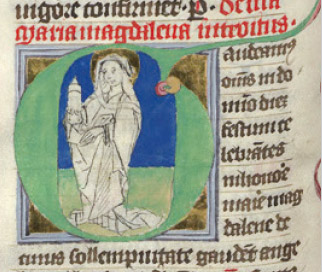 uigore confirmet. P. De sca
Maria magdalena introitus.
audeamus
omis in do
mino diem
festum ce
lebrates
in honore
marie mag
dalene de
cuius sollempnitate gaudet ange